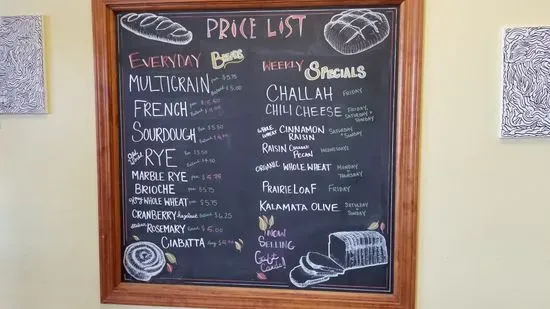 PRICE LIST
EVERYDAY
MULTIGRAIN pan $5.75
$5.00
FRENCH
SOURDOUGH $5.50
RYE $5.50
$4.50
MARBLE RYE pan $5.75
BRIOCHE pan $5.75
WHOLE WHEAT pan $5.75
CRANBERRY hazelnut $6.25
ROSEMARY round $5.00
CIABATTA
WEEKLY SPECIALS
CHALLAH FRIDAY
CHILI CHEESE FRIDAY, SATURDAY + SUNDAY
WHOLE WHEAT CINNAMON RAISIN SATURDAY + SUNDAY
RAISIN PECAN WEDNESDAY
ORGANIC WHOLE WHEAT MONDAY + THURSDAY
PRAIRIE LOAF FRIDAY
KALAMATA OLIVE SATURDAY + SUNDAY
NOW
SELLING
Gift
Cards!